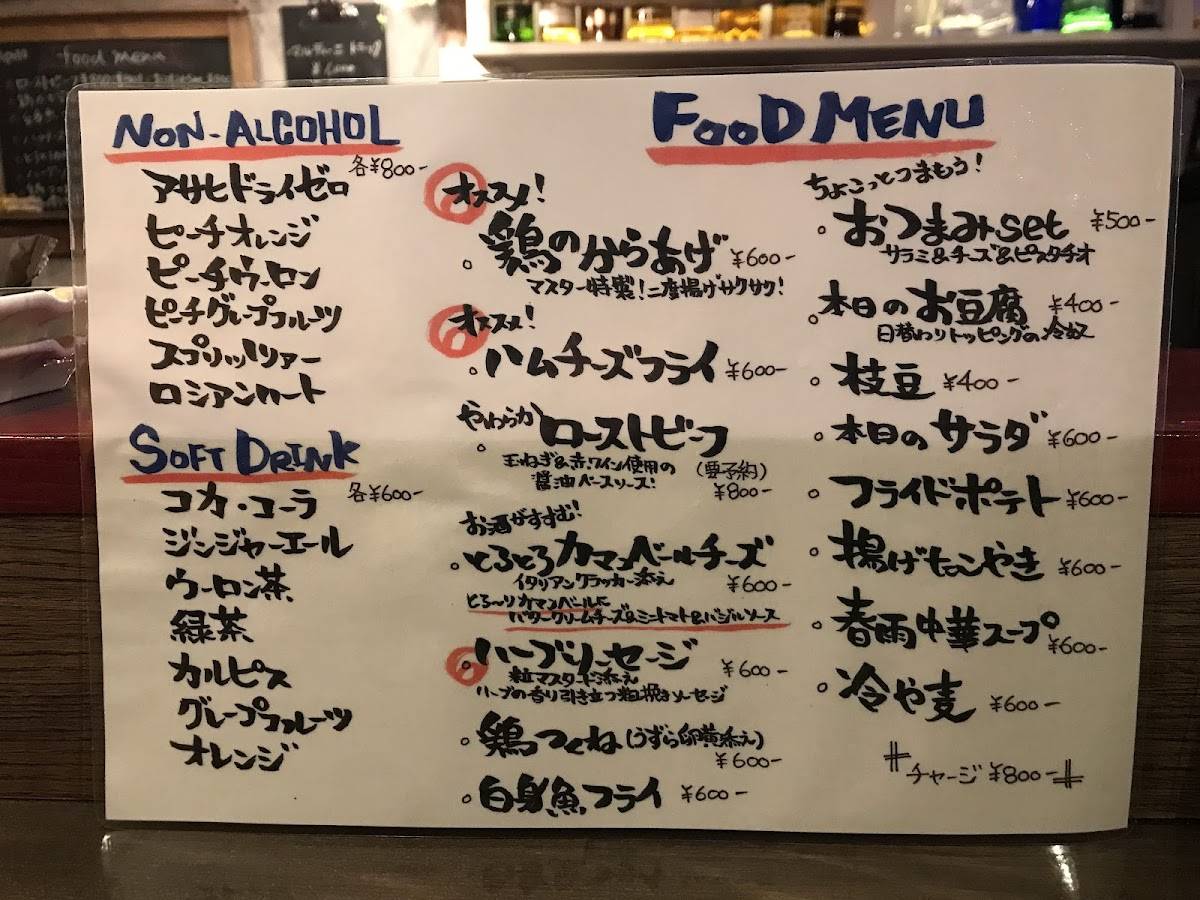 Food menu
NON-ALCOHOL
各¥800-
アサヒドライゼロ
ピーチオレンジ
ピーチウーロン
ピーチグレープフルーツ
スプリットツァー
ロシアンハート
SOFT DRINK
各¥600-
コカ・コーラ
ジンジャーエール
ウーロン茶
緑茶
カルピス
グレープフルーツ
オレンジ
FOOD MENU
オススメ!
鶏のからあげ ¥600-
マスター特製!二度揚げサクサク!
オススメ!
ハムチーズフライ ¥600-
やわらか ローストビーフ
玉ねぎ&赤ワイン使用の (要予約)
醤油ベースソース! ¥800-
お酒がすすむ!
とろとろカマンベールチーズ
イタリアンクラッカー添え ¥600-
とろ〜りカマンベールに
バタークリームチーズ&ミニトマト&バジルソース
ハーブソーセージ ¥600-
粒マスタード添え
ハーブの香り引き立つ粗挽きソーセージ
鶏つくね(うずら卵黄添え)
¥600-
白身魚フライ ¥600-
ちょこっとつまもう!
おつまみset ¥500-
サラミ&チーズ&ピスタチオ
本日のお豆腐 ¥400-
日替わりトッピングの冷奴
枝豆 ¥400-
本日のサラダ ¥600-
フライドポテト ¥600-
揚げたこやき ¥600-
春雨中華スープ ¥600-
冷や麦 ¥600-
チャージ ¥800-